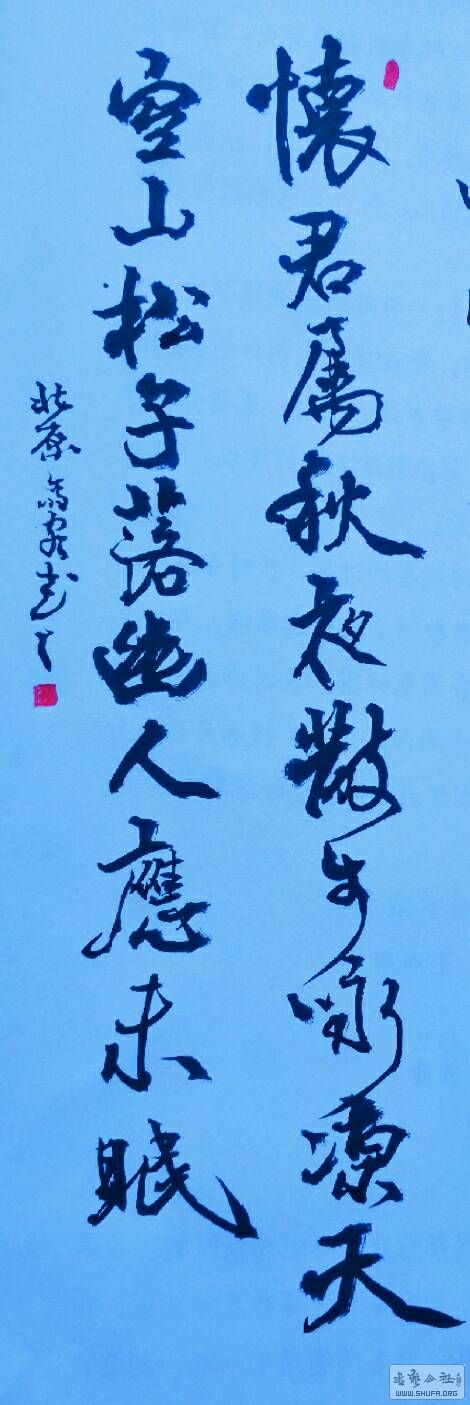 懷君屬秋夜散步咏凉天
空山松子落幽人應未眠
书艺公社
WWW.SHUFA.ORG